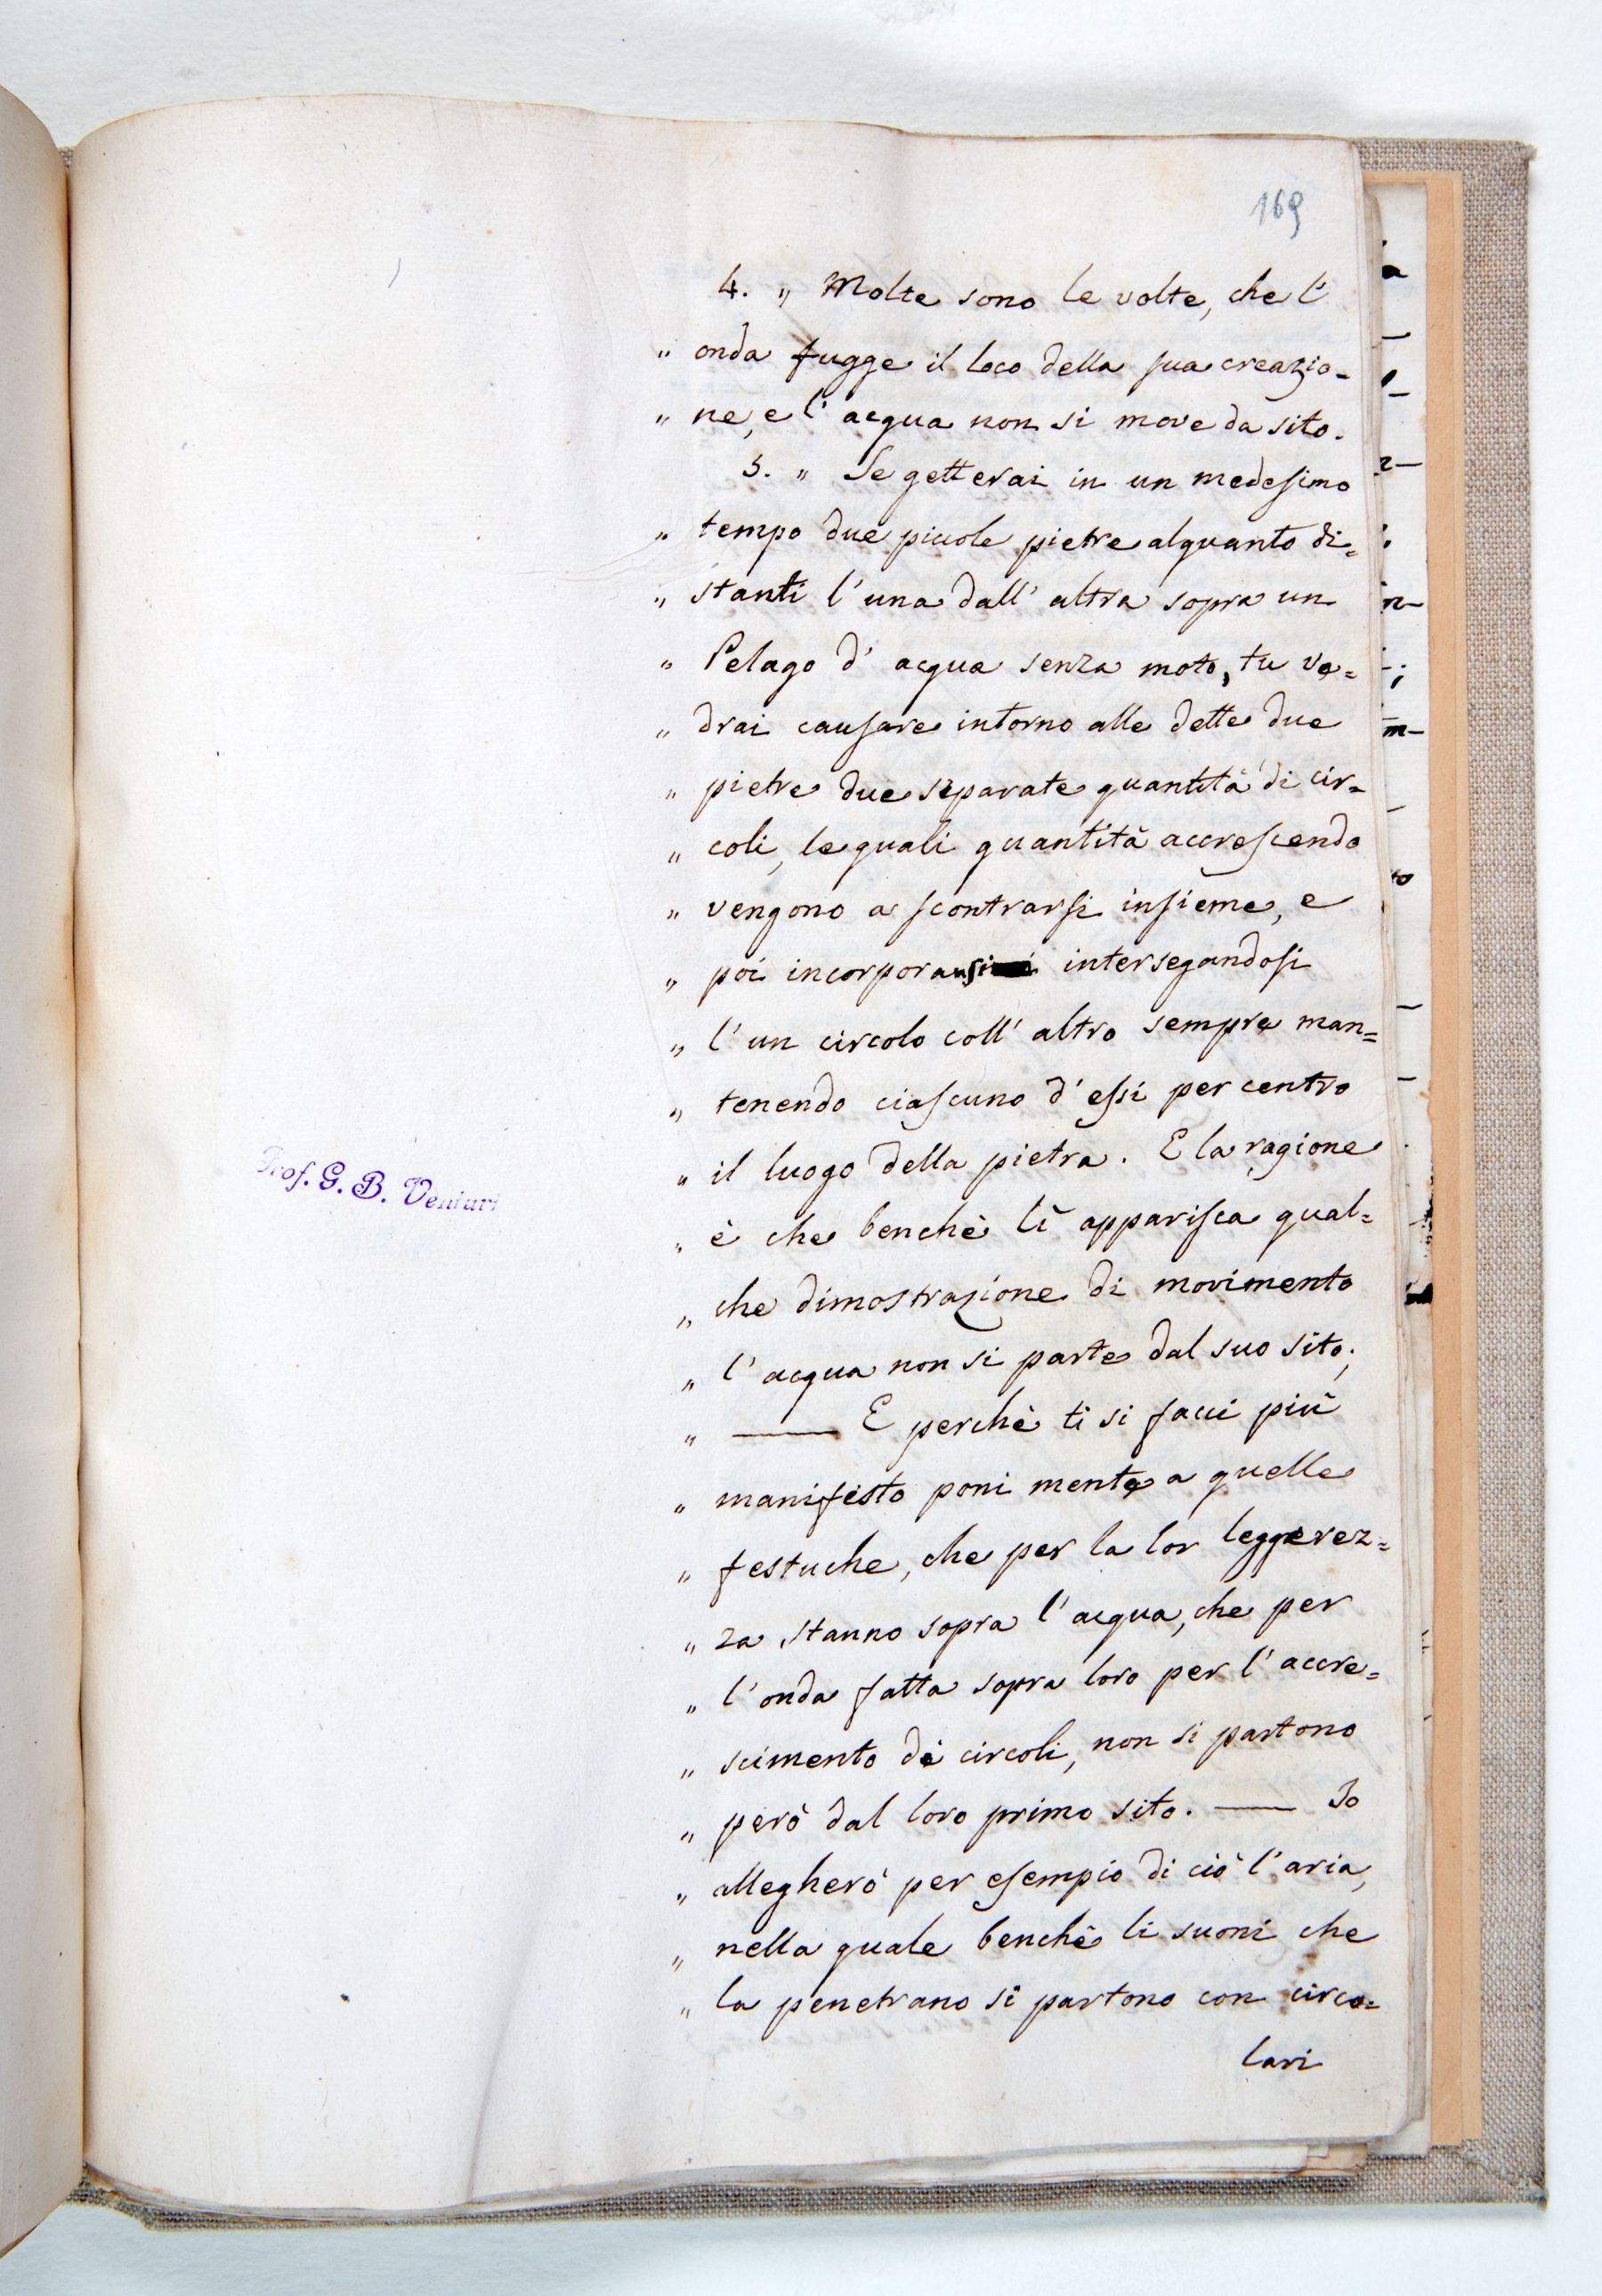 169
4. „ Molte sono le volte, che l'
„ onda fugge il loco della sua creazio=
„ ne, e l' acqua non si move da sito.
5. „ Se getterai in un medesimo
„ tempo due picole pietre alquanto di=
„ stanti l' una dall' altra sopra un
„ Pelago d' acqua senza moto, tu ve=
„ drai causare intorno alle dette due
„ pietre due separate quantità di cir=
„ coli, le quali quantità accrescendo
„ vengono a scontrarsi insieme, e
„ poi incorporansi intersegandosi
„ l' un circolo coll' altro sempre man=
„ tenendo ciascuno d' essi per centro
„ il luogo della pietra. E la ragione
„ è che benchè lì apparisca qual=
„ che dimostrazione di movimento
„ l' acqua non si parte dal suo sito;
„ —— E perchè ti si facci più
„ manifesto poni mente a quelle
„ festuche, che per la lor leggerez=
„ za stanno sopra l' acqua, che per
„ l' onda fatta sopra loro per l' accre=
„ scimento dè circoli, non si partono
„ però dal loro primo sito. —— Io
„ allegherò per esempio di ciò l' aria,
„ nella quale benchè li suoni che
„ la penetrano si partono con circo=
lari
Prof. G. B. Venturi